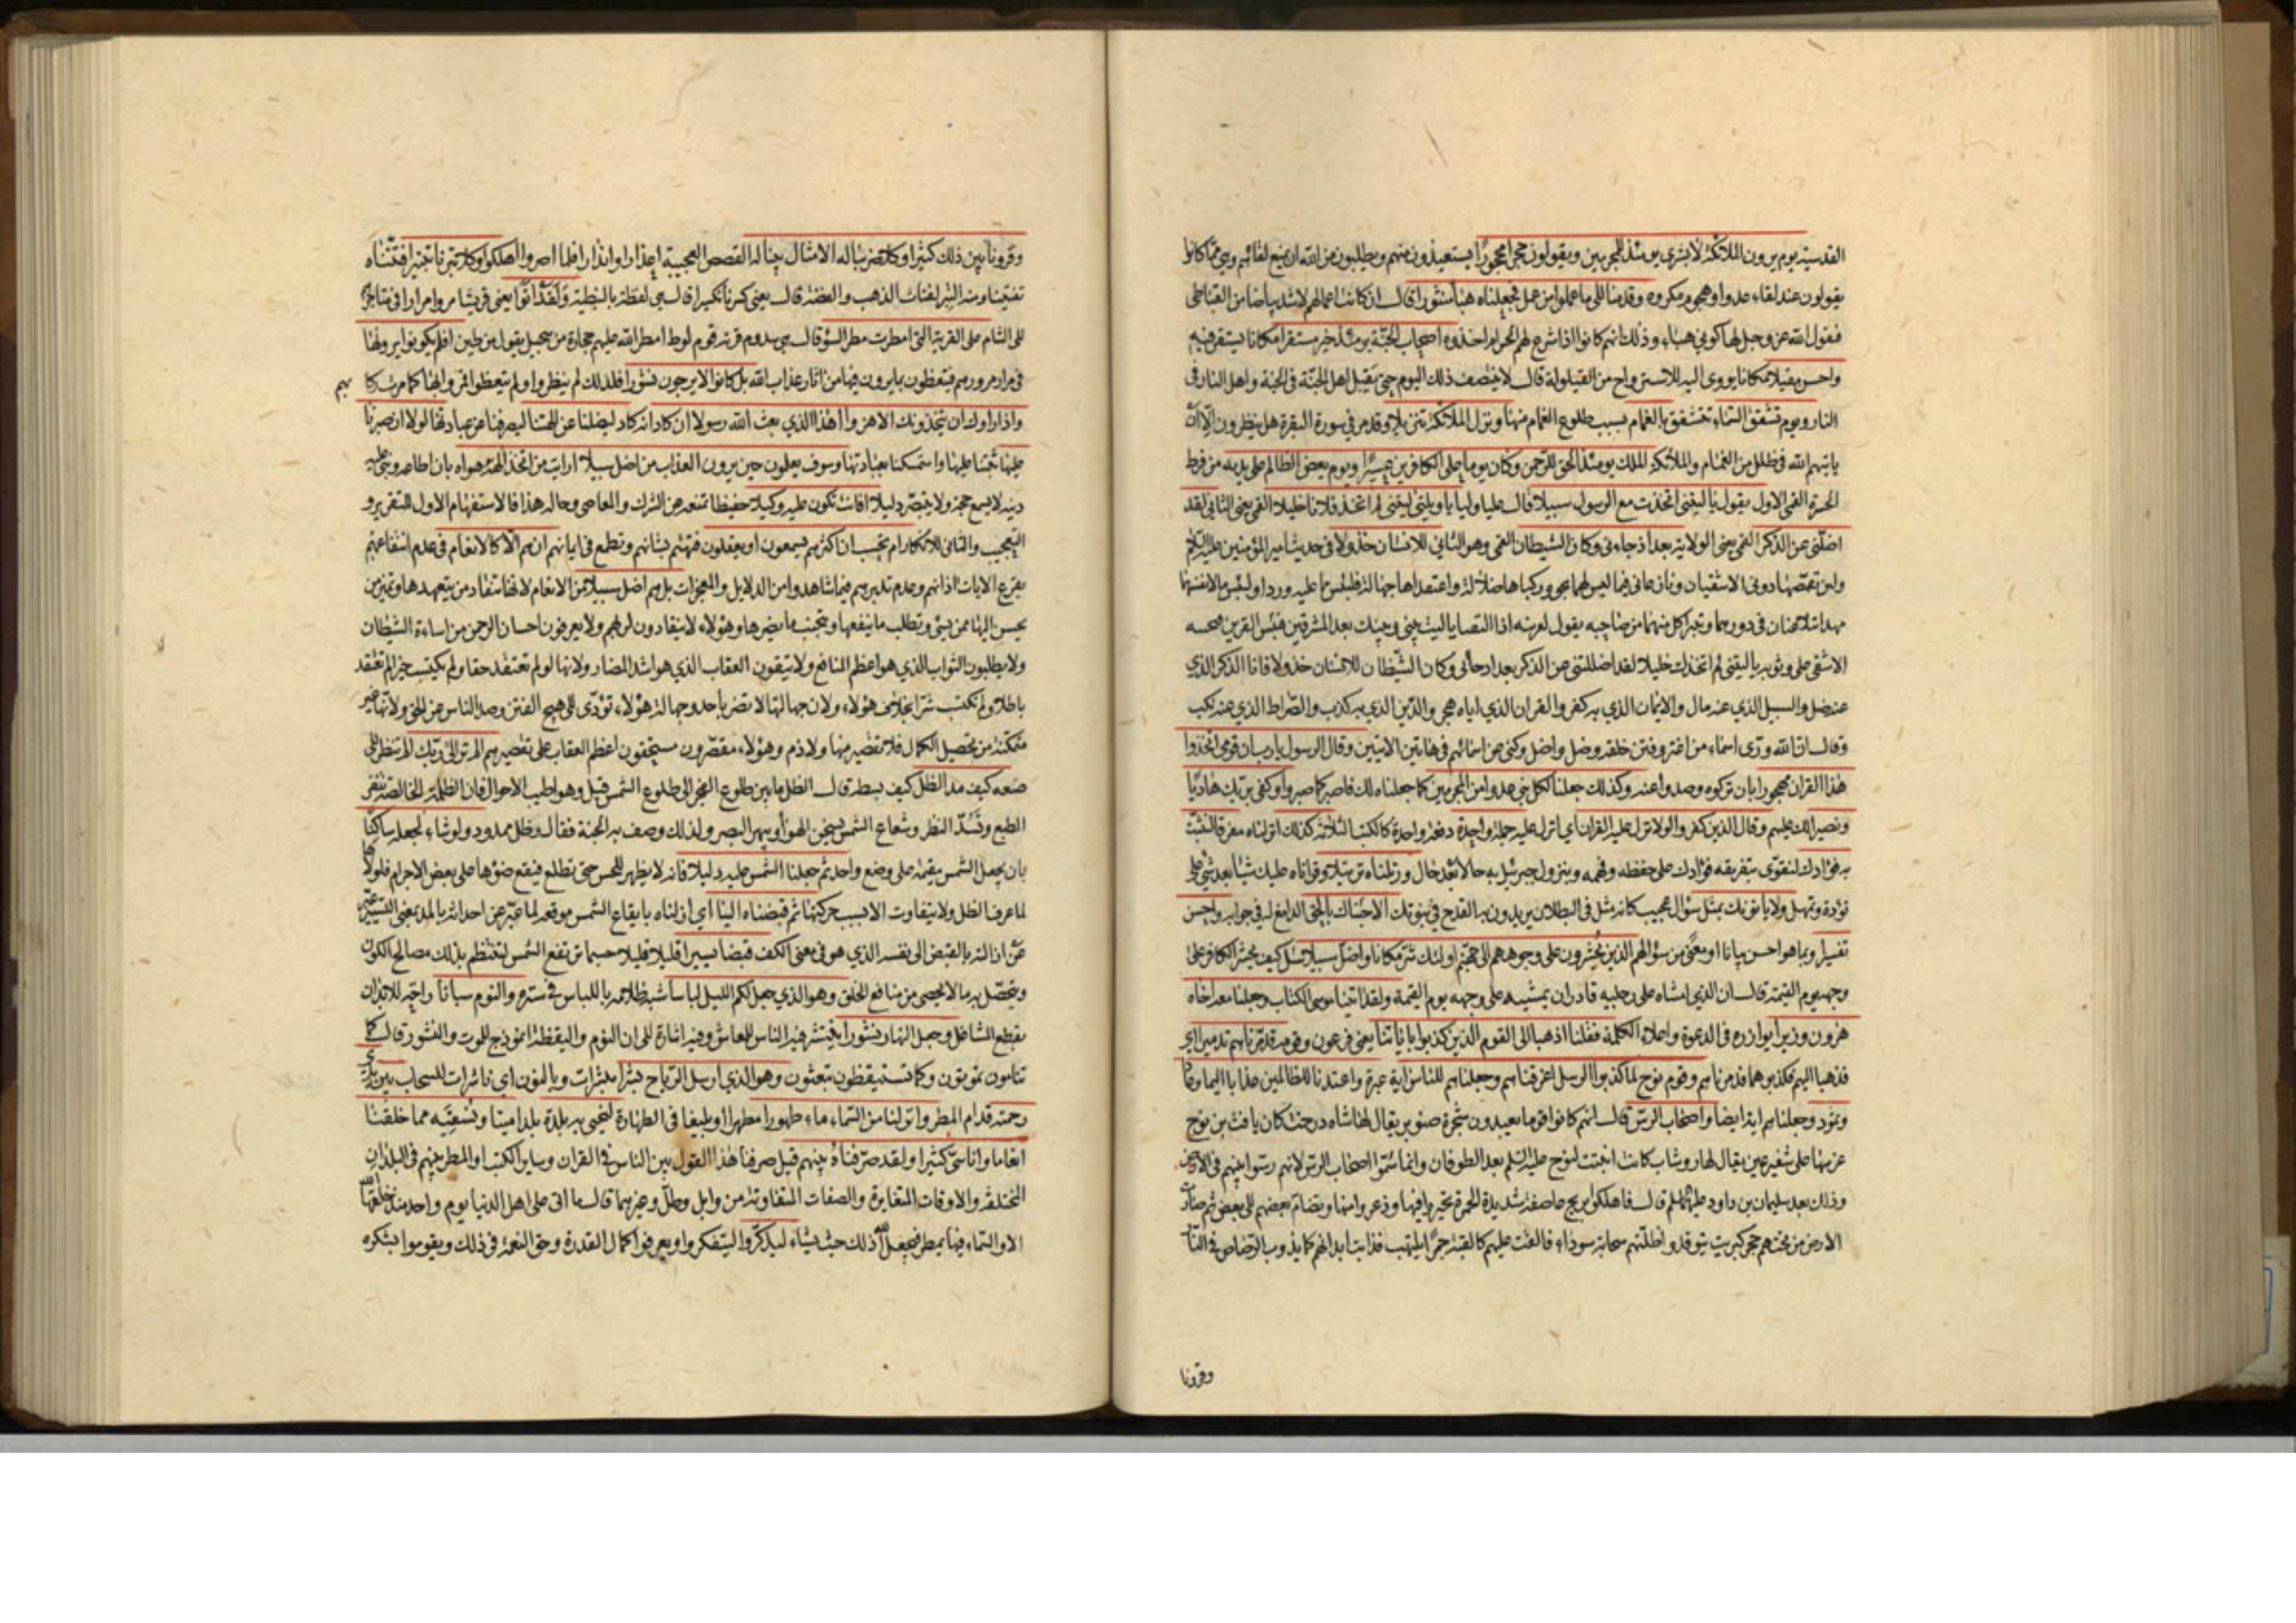 القدسية يوم يرون الملائكة لا بشرى يومئذ للمجرمين ويقولون حجرا محجورا يستعيذون منهم ويطلبون من الله ان يمنع لقائهم وهي مما كانوا
يقولون عند لقاء عدو او هجوم مكروه وقدمنا الى ما عملوا من عمل فجعلناه هباء منثورا قال ان كانت اعمالهم لاشد بياضا من القباطي
فيقول الله عز وجل لها كوني هباء وذلك انهم كانوا اذا شرع لهم الحرام اخذوه اصحاب الجنة يومئذ خير مستقرا مكانا يستقر فيه
واحسن مقيلا مكانا يووى اليه للاسترواح من القيلولة قال لا ينتصف ذلك اليوم حتى يقيل اهل الجنة في الجنة واهل النار في
النار ويوم تشقق السماء تتشقق بالغمام بسبب طلوع الغمام منها ونزل الملائكة تنزيلا وقد مر في سورة البقرة هل ينظرون الا ان
ياتيهم الله في ظلل من الغمام والملائكة الملك يومئذ الحق للرحمن وكان يوما على الكافرين عسيرا ويوم يعض الظالم على يديه من فرط
الحسرة القمي الاول يقول يا ليتني اتخذت مع الرسول سبيلا قال عليا وليا يا ويلتى ليتني لم اتخذ فلانا خليلا القمي يعني الثاني لقد
اضلني عن الذكر القمي يعني الولاية بعد اذ جاءني وكان الشيطان القمي وهو الثاني للانسان خذولا في حديث امير المؤمنين عليه السلم
ولئن تقمصها دوني الاشقيان ونازعاني فيما ليس لهما بحق وركباها ضلالة واعتقداها جهالة فلبئس ما عليه وردا ولبئس ما لانفسهما
مهدا يتلاعنان في دورهما ويتبرأ كل منهما من صاحبه يقول لقرينه اذا التقيا يا ليت بيني وبينك بعد المشرقين فبئس القرين فيجيبه
الاشقى على وثوبه يا ليتني لم اتخذك خليلا لقد اضللتني عن الذكر بعد اذ جاءني وكان الشيطان للانسان خذولا فانا الذكر الذي
عنه ضل والسبيل الذي عنه مال والايمان الذي به كفر والقران الذي اياه هجر والدين الذي به كذب والصراط الذي عنه نكب
وقال ان الله ورى اسماء من اغتر وفتن خلقه وضل واضل وكنى عن اسمائهم في هاتين الايتين وقال الرسول يا رب ان قومي اتخذوا
هذا القران مهجورا بان تركوه وصدوا عنه وكذلك جعلنا لكل نبي عدوا من المجرمين كما جعلناه لك فاصبر كما صبروا وكفى بربك هاديا
ونصيرا لك عليهم وقال الذين كفروا لولا نزل عليه القران اي انزل عليه جملة واحدة دفعة واحدة كالكتب الثلاثة كذلك انزلناه مفرقا لنثبت
به فؤادك لنقوي بتفريقه فؤادك على حفظه وفهمه وينزل جبرئيل به حالا بعد حال ورتلناه ترتيلا وقراناه عليك شيئا بعد شيء على
تؤدة وتمهل ولا ياتونك بمثل سؤال عجيب كانه مثل في البطلان يريدون به القدح في نبوتك الا جئناك بالحق الدامغ له في جوابه واحسن
تفسيرا وبما هو احسن بيانا او معنى من سؤالهم الذين يحشرون على وجوههم الى جهنم اولئك شر مكانا واضل سبيلا سئل كيف يحشر الكافر على
وجهه يوم القيمة قال ان الذي امشاه على رجليه قادر ان يمشيه على وجهه يوم القيمة ولقد اتينا موسى الكتاب وجعلنا معه اخاه
هرون وزيرا يوازره في الدعوة واعلاء الكلمة فقلنا اذهبا الى القوم الذين كذبوا باياتنا يعني فرعون وقومه فدمرناهم تدميرا اي
فذهبا اليهم فكذبوهما فدمرناهم وقوم نوح لما كذبوا الرسل اغرقناهم وجعلناهم للناس اية عبرة واعتدنا للظالمين عذابا اليما وعادا
وثمود وجعلناهم اية ايضا واصحاب الرس قال انهم كانوا قوما يعبدون شجرة صنوبر يقال لها شاه درخت كان يافث بن نوح
غرسها على شفير عين يقال لها روشاب كانت انبتت لنوح عليه السلم بعد الطوفان وانما سموا اصحاب الرس لانهم رسوا نبيهم في الارض
وذلك بعد سليمان بن داود عليهما السلم قال فاهلكوا بريح عاصفة شديدة الحمرة تحيروا فيها وذعروا منها وتضام بعضهم الى بعض ثم صارت
الارض من تحتهم حجر كبريت يتوقد واظلتهم سحابة سوداء فالقت عليهم كالقبة جمرا يلتهب فذابت ابدانهم كما يذوب الرصاص في النار
وقرونا
وقرونا بين ذلك كثيرا وكلا ضربنا له الامثال بينا له القصص العجيبة اعذارا وانذارا فلما اصروا اهلكوا وكلا تبرنا تتبيرا فتتناه
تفتيتا ومنه التبر لفتات الذهب والفضة قال يعني كسرنا تكسيرا قال هي لفظة بالنبطية ولقد اتوا يعني قريشا مروا مرارا في متاجرهم
الى الشام على القرية التي امطرت مطر السوء قال هي سدوم قرية قوم لوط امطر الله عليهم حجارة من سجيل يقول من طين افلم يكونوا يرونها
في مرار مرورهم فيتعظون بما يرون فيها من اثار عذاب الله بل كانوا لا يرجون نشورا فلذلك لم ينظروا ولم يتعظوا فمروا بها كما مرت ركابهم
واذا راوك ان يتخذونك الا هزوا اهذا الذي بعث الله رسولا ان كاد انه كاد ليضلنا عن الهتنا ليصرفنا عن عبادتها لولا ان صبرنا
عليها ثبتنا عليها واستمسكنا بعبادتها وسوف يعلمون حين يرون العذاب من اضل سبيلا ارايت من اتخذ الهه هواه بان اطاعه وبنى عليه
دينه لا يسمع حجة ولا يتبصر دليلا افانت تكون عليه وكيلا حفيظا تمنعه عن الشرك والمعاصي وحاله هذا فالاستفهام الاول للتقرير و
التعجيب والثاني للانكار ام تحسب ان اكثرهم يسمعون او يعقلون فتهتم بشانهم وتطمع في ايمانهم ان هم الا كالانعام في عدم انتفاعهم
بقرع الايات اذانهم وعدم تدبرهم فيما شاهدوا من الدلايل والمعجزات بل هم اضل سبيلا من الانعام لانها تنقاد من يتعهدها وتميز من
يحسن اليها ممن يسيء وتطلب ما ينفعها وتجتنب ما يضرها وهؤلاء لا ينقادون لربهم ولا يعرفون احسان الرحمن من اساءة الشيطان
ولا يطلبون الثواب الذي هو اعظم المنافع ولا يتقون العقاب الذي هو اشد المضار ولانها لو لم تعتقد حقا ولم تكتسب خيرا لم تعتقد
باطلا ولم تكتسب شرا بخلاف هؤلاء ولان جهالتها لا تضر باحد وجهالة هؤلاء تؤدي الى هيج الفتن وصد الناس عن الحق ولانها غير
متمكنة من تحصيل الكمال فلا تقصير منها ولا ذم وهؤلاء مقصرون مستحقون اعظم العقاب على تقصيرهم الم تر الى ربك الم تنظر الى
صنعه كيف مد الظل كيف بسطه قال الظل ما بين طلوع الفجر الى طلوع الشمس قيل وهو اطيب الاحوال فان الظلمة الخالصة تنفر
الطبع وتسد النظر وشعاع الشمس يسخن الهوا ويبهر البصر ولذلك وصف به الجنة فقال وظل ممدود ولو شاء لجعله ساكنا
بان يجعل الشمس مقيمة على وضع واحد ثم جعلنا الشمس عليه دليلا فانه لا يظهر للحس حتى تطلع فيقع ضوؤها على بعض الاجرام فلولاها
لما عرف الظل ولا يتفاوت الا بسبب حركتها ثم قبضناه الينا اي ازلناه بايقاع الشمس موقعه لما عبر عن احداثه بالمد بمعنى التسيير عبر
عن ازالته بالقبض الى نفسه الذي هو في معنى الكف قبضا يسيرا قليلا قليلا حسبما ترتفع الشمس لتنتظم بذلك مصالح الكون
ويتحصل به ما لا يحصى من منافع الخلق وهو الذي جعل لكم الليل لباسا شبه ظلامه باللباس في ستره والنوم سباتا راحة للابدان
بقطع المشاغل وجعل النهار نشورا ينتشر فيه الناس للمعاش وفيه اشارة الى ان النوم واليقظة انموذج للموت والنشور قال كما
تنامون تموتون وكما تستيقظون تبعثون وهو الذي ارسل الرياح بشرا مبشرات وبالنون اي ناشرات للسحاب بين يدي
رحمته قدام المطر وانزلنا من السماء ماء طهورا مطهرا او بليغا في الطهارة لنحيي به بلدة بلدا ميتا ونسقيه مما خلقنا
انعاما واناسي كثيرا ولقد صرفناه بينهم قيل صرفنا هذا القول بين الناس في القران وساير الكتب او المطر بينهم في البلدان
المختلفة والاوقات المتغايرة والصفات المتفاوتة من وابل وطل وغيرهما قال ما اتى على اهل الدنيا يوم واحد منذ خلقها الله
الا والسماء فيها يمطر فيجعل الله ذلك حيث يشاء ليذكروا ليتفكروا ويعرفوا كمال القدرة وحق النعمة في ذلك ويقوموا بشكره